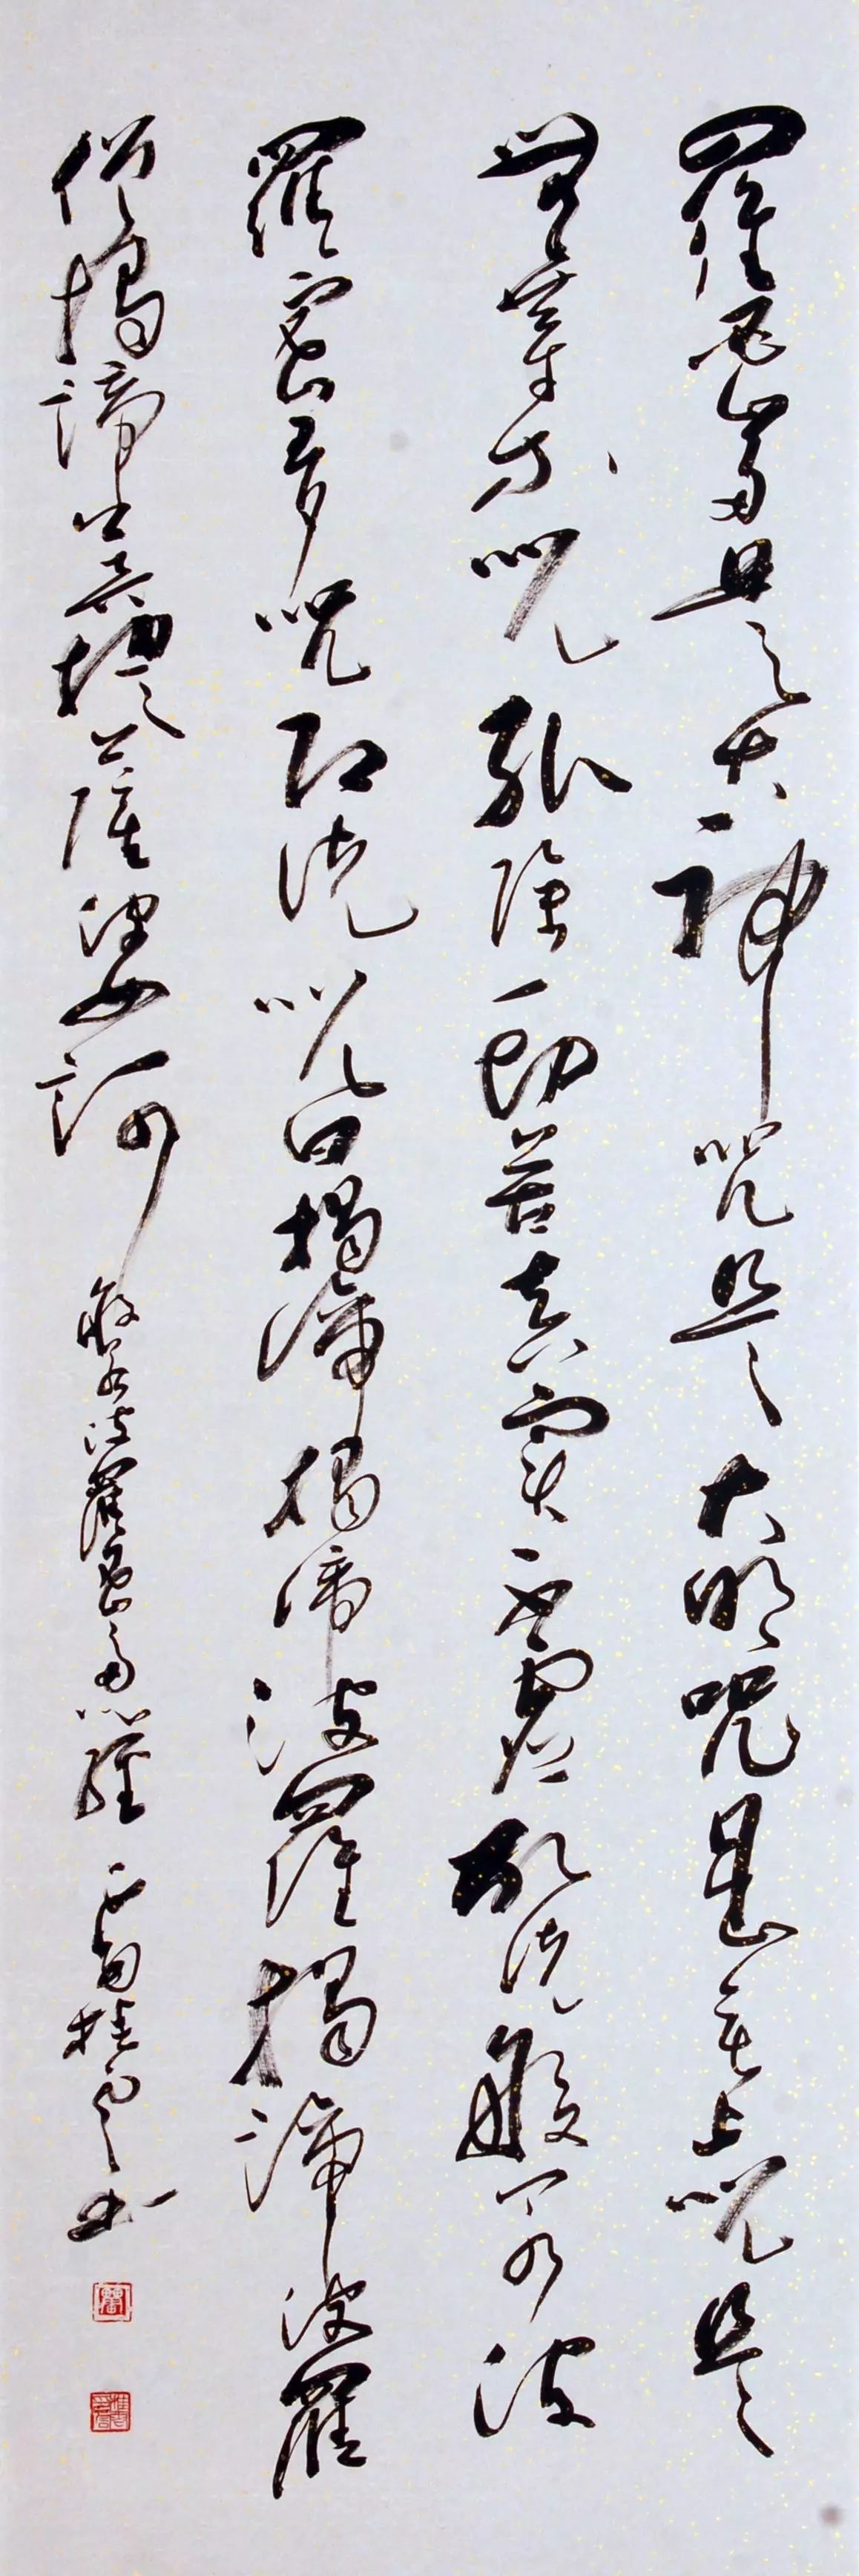 羅蜜多是大神咒是大明咒是無上咒是
無等等咒能除一切苦真實不虛故說般若波
羅蜜多咒即說咒曰揭諦揭諦波羅揭諦波羅
僧揭諦菩提薩婆訶 般若波羅蜜多心經 桂雲書